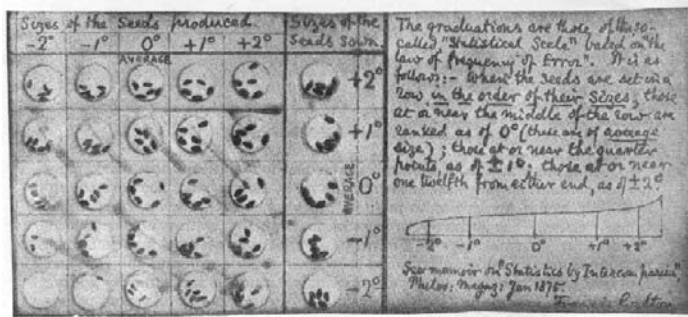 Sizes of the Seeds produced.
-2° -1° 0° +1° +2°
AVERAGE
Sizes of the
Seeds Sown.
+2°
+1°
0°
AVERAGE
-1°
-2°
The graduations are those of the so-
called "Statistical Scale" based on the
"law of frequency of Error". It is as
follows:- When the seeds are set in a
row in the order of their Sizes, those
at or near the middle of the row are
ranked as of 0° (these are of average
size); those at or near the quarter
points, as of ±1°. those at or near
one twelfth from either end, as of ±2°.
-2° -1° 0° +1° +2°
See memoir on "Statistics by Intercomparison",
Philos: Magaz: Jan 1875.
Francis Galton